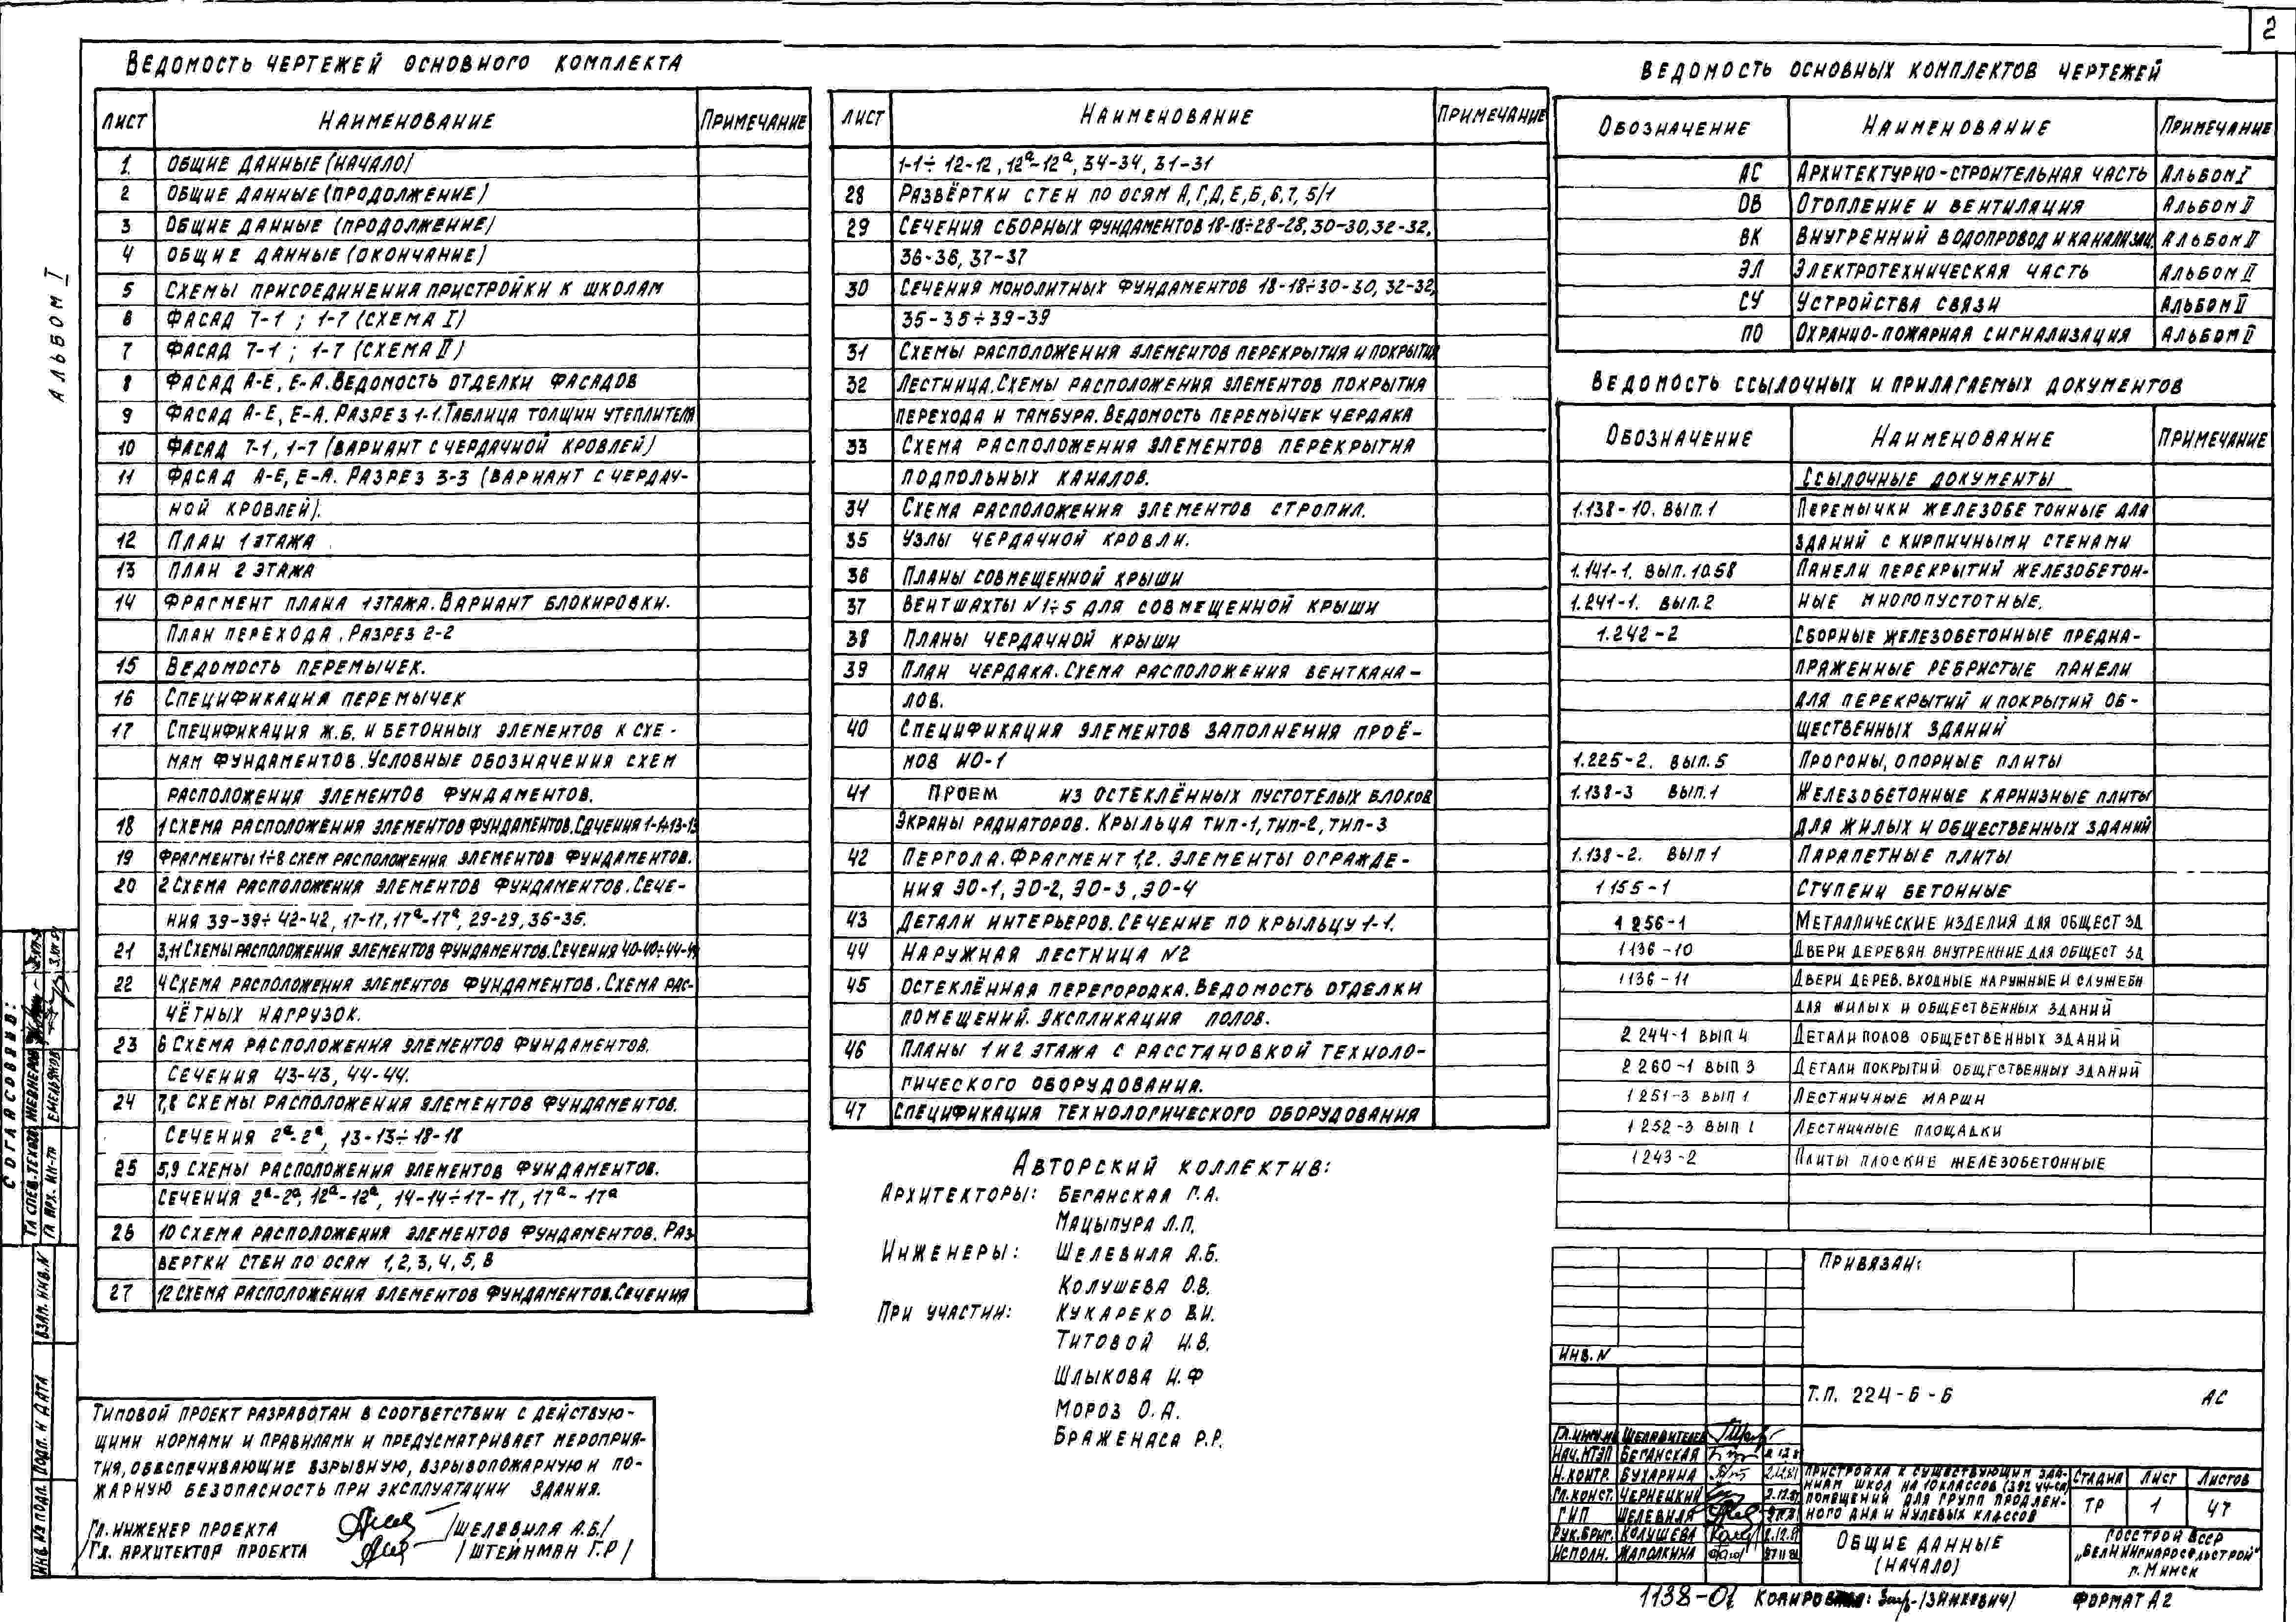 2
АЛЬБОМ I
ВЕДОМОСТЬ ЧЕРТЕЖЕЙ ОСНОВНОГО КОМПЛЕКТА
ЛИСТ НАИМЕНОВАНИЕ ПРИМЕЧАНИЕ
1 ОБЩИЕ ДАННЫЕ (НАЧАЛО)
2 ОБЩИЕ ДАННЫЕ (ПРОДОЛЖЕНИЕ)
3 ОБЩИЕ ДАННЫЕ (ПРОДОЛЖЕНИЕ)
4 ОБЩИЕ ДАННЫЕ (ОКОНЧАНИЕ)
5 СХЕМЫ ПРИСОЕДИНЕНИЯ ПРИСТРОЙКИ К ШКОЛАМ
6 ФАСАД 7-1 ; 1-7 (СХЕМА I)
7 ФАСАД 7-1 ; 1-7 (СХЕМА II)
8 ФАСАД А-Е, Е-А. ВЕДОМОСТЬ ОТДЕЛКИ ФАСАДОВ
9 ФАСАД А-Е, Е-А. РАЗРЕЗ 1-1. ТАБЛИЦА ТОЛЩИН УТЕПЛИТЕЛЯ
10 ФАСАД 7-1, 1-7 (ВАРИАНТ С ЧЕРДАЧНОЙ КРОВЛЕЙ)
11 ФАСАД А-Е, Е-А. РАЗРЕЗ 3-3 (ВАРИАНТ С ЧЕРДАЧ-
НОЙ КРОВЛЕЙ).
12 ПЛАН 1 ЭТАЖА
13 ПЛАН 2 ЭТАЖА
14 ФРАГМЕНТ ПЛАНА 1 ЭТАЖА. ВАРИАНТ БЛОКИРОВКИ.
ПЛАН ПЕРЕХОДА. РАЗРЕЗ 2-2
15 ВЕДОМОСТЬ ПЕРЕМЫЧЕК.
16 СПЕЦИФИКАЦИЯ ПЕРЕМЫЧЕК
17 СПЕЦИФИКАЦИЯ Ж.Б. И БЕТОННЫХ ЭЛЕМЕНТОВ К СХЕ-
МАМ ФУНДАМЕНТОВ. УСЛОВНЫЕ ОБОЗНАЧЕНИЯ СХЕМ
РАСПОЛОЖЕНИЯ ЭЛЕМЕНТОВ ФУНДАМЕНТОВ.
18 1 СХЕМА РАСПОЛОЖЕНИЯ ЭЛЕМЕНТОВ ФУНДАМЕНТОВ. СЕЧЕНИЯ 1-1÷13-13
19 ФРАГМЕНТЫ 1÷8 СХЕМ РАСПОЛОЖЕНИЯ ЭЛЕМЕНТОВ ФУНДАМЕНТОВ.
20 2 СХЕМА РАСПОЛОЖЕНИЯ ЭЛЕМЕНТОВ ФУНДАМЕНТОВ. СЕЧЕ-
НИЯ 39-39÷42-42, 17-17, 17ª-17ª, 29-29, 36-36.
21 3,11 СХЕМЫ РАСПОЛОЖЕНИЯ ЭЛЕМЕНТОВ ФУНДАМЕНТОВ. СЕЧЕНИЯ 40-40÷44-44
22 4 СХЕМА РАСПОЛОЖЕНИЯ ЭЛЕМЕНТОВ ФУНДАМЕНТОВ. СХЕМА РАС-
ЧЁТНЫХ НАГРУЗОК.
23 6 СХЕМА РАСПОЛОЖЕНИЯ ЭЛЕМЕНТОВ ФУНДАМЕНТОВ.
СЕЧЕНИЯ 43-43, 44-44.
24 7,8 СХЕМЫ РАСПОЛОЖЕНИЯ ЭЛЕМЕНТОВ ФУНДАМЕНТОВ.
СЕЧЕНИЯ 2ª-2ª, 13-13÷18-18
25 5,9 СХЕМЫ РАСПОЛОЖЕНИЯ ЭЛЕМЕНТОВ ФУНДАМЕНТОВ.
СЕЧЕНИЯ 2ª-2ª, 12ª-12ª, 14-14÷17-17, 17ª-17ª
26 10 СХЕМА РАСПОЛОЖЕНИЯ ЭЛЕМЕНТОВ ФУНДАМЕНТОВ. РАЗ-
ВЕРТКИ СТЕН ПО ОСЯМ 1, 2, 3, 4, 5, В
27 12 СХЕМА РАСПОЛОЖЕНИЯ ЭЛЕМЕНТОВ ФУНДАМЕНТОВ. СЕЧЕНИЯ
ЛИСТ НАИМЕНОВАНИЕ ПРИМЕЧАНИЕ
1-1÷12-12, 12ª-12ª, 34-34, 31-31
28 РАЗВЁРТКИ СТЕН ПО ОСЯМ А, Г, Д, Е, Б, 6, 7, 5/1
29 СЕЧЕНИЯ СБОРНЫХ ФУНДАМЕНТОВ 18-18÷28-28, 30-30, 32-32,
36-36, 37-37
30 СЕЧЕНИЯ МОНОЛИТНЫХ ФУНДАМЕНТОВ 18-18÷30-30, 32-32,
35-35÷39-39
31 СХЕМЫ РАСПОЛОЖЕНИЯ ЭЛЕМЕНТОВ ПЕРЕКРЫТИЯ И ПОКРЫТИЯ
32 ЛЕСТНИЦА. СХЕМЫ РАСПОЛОЖЕНИЯ ЭЛЕМЕНТОВ ПОКРЫТИЯ
ПЕРЕХОДА И ТАМБУРА. ВЕДОМОСТЬ ПЕРЕМЫЧЕК ЧЕРДАКА
33 СХЕМА РАСПОЛОЖЕНИЯ ЭЛЕМЕНТОВ ПЕРЕКРЫТИЯ
ПОДПОЛЬНЫХ КАНАЛОВ.
34 СХЕМА РАСПОЛОЖЕНИЯ ЭЛЕМЕНТОВ СТРОПИЛ.
35 УЗЛЫ ЧЕРДАЧНОЙ КРОВЛИ.
36 ПЛАНЫ СОВМЕЩЕННОЙ КРЫШИ
37 ВЕНТШАХТЫ №1÷5 ДЛЯ СОВМЕЩЕННОЙ КРЫШИ
38 ПЛАНЫ ЧЕРДАЧНОЙ КРЫШИ
39 ПЛАН ЧЕРДАКА. СХЕМА РАСПОЛОЖЕНИЯ ВЕНТКАНА-
ЛОВ.
40 СПЕЦИФИКАЦИЯ ЭЛЕМЕНТОВ ЗАПОЛНЕНИЯ ПРОЁ-
МОВ НО-1
41 ПРОЕМ ИЗ ОСТЕКЛЁННЫХ ПУСТОТЕЛЫХ БЛОКОВ
ЭКРАНЫ РАДИАТОРОВ. КРЫЛЬЦА ТИП-1, ТИП-2, ТИП-3
42 ПЕРГОЛА. ФРАГМЕНТ 1,2. ЭЛЕМЕНТЫ ОГРАЖДЕ-
НИЯ ЭО-1, ЭО-2, ЭО-3, ЭО-4
43 ДЕТАЛИ ИНТЕРЬЕРОВ. СЕЧЕНИЕ ПО КРЫЛЬЦУ 1-1.
44 НАРУЖНАЯ ЛЕСТНИЦА №2
45 ОСТЕКЛЁННАЯ ПЕРЕГОРОДКА. ВЕДОМОСТЬ ОТДЕЛКИ
ПОМЕЩЕНИЙ. ЭКСПЛИКАЦИЯ ПОЛОВ.
46 ПЛАНЫ 1 И 2 ЭТАЖА С РАССТАНОВКОЙ ТЕХНОЛО-
ГИЧЕСКОГО ОБОРУДОВАНИЯ.
47 СПЕЦИФИКАЦИЯ ТЕХНОЛОГИЧЕСКОГО ОБОРУДОВАНИЯ
АВТОРСКИЙ КОЛЛЕКТИВ:
АРХИТЕКТОРЫ: БЕГАНСКАЯ Г.А.
МАЦЫПУРА Л.П.
ИНЖЕНЕРЫ: ШЕЛЕВИЛЯ А.Б.
КОЛУШЕВА О.В.
ПРИ УЧАСТИИ: КУКАРЕКО В.И.
ТИТОВОЙ И.В.
ШЛЫКОВА И.Ф
МОРОЗ О.А.
БРАЖЕНАСА Р.Р.
ВЕДОМОСТЬ ОСНОВНЫХ КОМПЛЕКТОВ ЧЕРТЕЖЕЙ
ОБОЗНАЧЕНИЕ НАИМЕНОВАНИЕ ПРИМЕЧАНИЕ
АС АРХИТЕКТУРНО-СТРОИТЕЛЬНАЯ ЧАСТЬ АЛЬБОМ I
ОВ ОТОПЛЕНИЕ И ВЕНТИЛЯЦИЯ АЛЬБОМ II
ВК ВНУТРЕННИЙ ВОДОПРОВОД И КАНАЛИЗАЦ. АЛЬБОМ II
ЭЛ ЭЛЕКТРОТЕХНИЧЕСКАЯ ЧАСТЬ АЛЬБОМ II
СУ УСТРОЙСТВА СВЯЗИ АЛЬБОМ II
ПО ОХРАННО-ПОЖАРНАЯ СИГНАЛИЗАЦИЯ АЛЬБОМ II
ВЕДОМОСТЬ ССЫЛОЧНЫХ И ПРИЛАГАЕМЫХ ДОКУМЕНТОВ
ОБОЗНАЧЕНИЕ НАИМЕНОВАНИЕ ПРИМЕЧАНИЕ
ССЫЛОЧНЫЕ ДОКУМЕНТЫ
1.138-10. ВЫП.1 ПЕРЕМЫЧКИ ЖЕЛЕЗОБЕТОННЫЕ ДЛЯ
ЗДАНИЙ С КИРПИЧНЫМИ СТЕНАМИ
1.141-1. ВЫП.10.58 ПАНЕЛИ ПЕРЕКРЫТИЙ ЖЕЛЕЗОБЕТОН-
1.241-1. ВЫП.2 НЫЕ МНОГОПУСТОТНЫЕ.
1.242-2 СБОРНЫЕ ЖЕЛЕЗОБЕТОННЫЕ ПРЕДНА-
ПРЯЖЕННЫЕ РЕБРИСТЫЕ ПАНЕЛИ
ДЛЯ ПЕРЕКРЫТИЙ И ПОКРЫТИЙ ОБ-
ЩЕСТВЕННЫХ ЗДАНИЙ
1.225-2. ВЫП.5 ПРОГОНЫ, ОПОРНЫЕ ПЛИТЫ
1.138-3 ВЫП.1 ЖЕЛЕЗОБЕТОННЫЕ КАРНИЗНЫЕ ПЛИТЫ
ДЛЯ ЖИЛЫХ И ОБЩЕСТВЕННЫХ ЗДАНИЙ
1.138-2. ВЫП 1 ПАРАПЕТНЫЕ ПЛИТЫ
1 155-1 СТУПЕНИ БЕТОННЫЕ
1 256-1 МЕТАЛЛИЧЕСКИЕ ИЗДЕЛИЯ ДЛЯ ОБЩЕСТ ЗД
1 136-10 ДВЕРИ ДЕРЕВЯН ВНУТРЕННИЕ ДЛЯ ОБЩЕСТ ЗД
1 136-11 ДВЕРИ ДЕРЕВ. ВХОДНЫЕ НАРУЖНЫЕ И СЛУЖЕБН
ДЛЯ ЖИЛЫХ И ОБЩЕСТВЕННЫХ ЗДАНИЙ
2 244-1 ВЫП 4 ДЕТАЛИ ПОЛОВ ОБЩЕСТВЕННЫХ ЗДАНИЙ
2 260-1 ВЫП 3 ДЕТАЛИ ПОКРЫТИЙ ОБЩЕСТВЕННЫХ ЗДАНИЙ
1 251-3 ВЫП 1 ЛЕСТНИЧНЫЕ МАРШИ
1 252-3 ВЫП 1 ЛЕСТНИЧНЫЕ ПЛОЩАДКИ
1 243-2 ПЛИТЫ ПЛОСКИЕ ЖЕЛЕЗОБЕТОННЫЕ
СОГЛАСОВАНО:
ГЛ СПЕЦ. ТЕХНОЛ. ЖЕВНЕРОВ
ГЛ АРХ. ИН-ТА ЕМЕЛЬЯНОВ
ВЗАМ. ИНВ. N
ПОДП. И ДАТА
ИНВ. № ПОДЛ.
ТИПОВОЙ ПРОЕКТ РАЗРАБОТАН В СООТВЕТСТВИИ С ДЕЙСТВУЮ-
ЩИМИ НОРМАМИ И ПРАВИЛАМИ И ПРЕДУСМАТРИВАЕТ МЕРОПРИЯ-
ТИЯ, ОБЕСПЕЧИВАЮЩИЕ ВЗРЫВНУЮ, ВЗРЫВОПОЖАРНУЮ И ПО-
ЖАРНУЮ БЕЗОПАСНОСТЬ ПРИ ЭКСПЛУАТАЦИИ ЗДАНИЯ.
ГЛ. ИНЖЕНЕР ПРОЕКТА /ШЕЛЕВИЛЯ А.Б./
ГЛ. АРХИТЕКТОР ПРОЕКТА /ШТЕЙНМАН Г.Р/
ПРИВЯЗАН:
ИНВ. N
Т.П. 224-6-6 АС
ГЛ. ИНЖ. ИН
НАЧ. МТЭП БЕГАНСКАЯ
Н. КОНТР. БУХАРИНА
ГЛ. КОНСТ. ЧЕРНЕЦКИЙ
ГИП ШЕЛЕВИЛЯ
РУК. БРИГ. КОЛУШЕВА
ИСПОЛН. ЖАГОЛКИНА
ПРИСТРОЙКА К СУЩЕСТВУЮЩИМ ЗДА-
НИЯМ ШКОЛ НА 10 КЛАССОВ
ПОМЕЩЕНИЙ ДЛЯ ГРУПП ПРОДЛЕН-
НОГО ДНЯ И НУЛЕВЫХ КЛАССОВ
СТАДИЯ ЛИСТ ЛИСТОВ
ТР 1 47
ОБЩИЕ ДАННЫЕ
(НАЧАЛО)
ГОССТРОЙ БССР
„БЕЛНИИГИПРОСЕЛЬСТРОЙ"
г. МИНСК
1138-01 КОПИРОВАЛА: /ЗИНКЕВИЧ/ ФОРМАТ А2